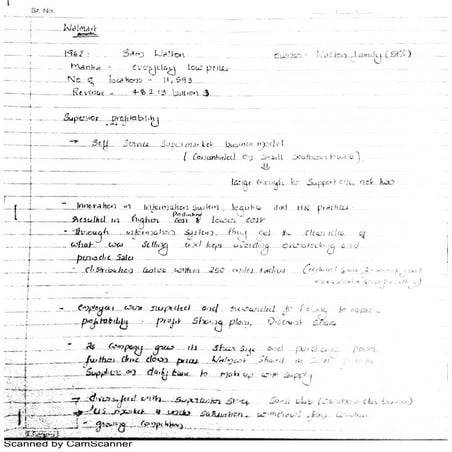 Sr. No.
Walmart
1962: Sam Walton owner - Walton family (51%)
Mantra - everyday low prices
No of locations - 11,593
Revenue - 482.13 billion $
Superior profitability
→ Self Service Supermarket business model
(Concentrated on Small Southern towns)
large enough to support one, not two
- Innovation in Information system, logistic and HR practices
resulted in higher Productivity & lower cost
- Through information system, they got clear idea of
what was selling and kept avoiding overstocking and
periodic sales
- distribution within 250 miles radius
- employees were respected and rewarded for helping to
profitability. Profit Sharing plan, Discount
- As company grew its size and purchasing power
further drive down prices Walmart Shared
Supplier on daily basis to make up with supply
→ diversified with Supercenter Store Sams club
→ US market is under saturation
- growing competition
Scanned by CamScanner